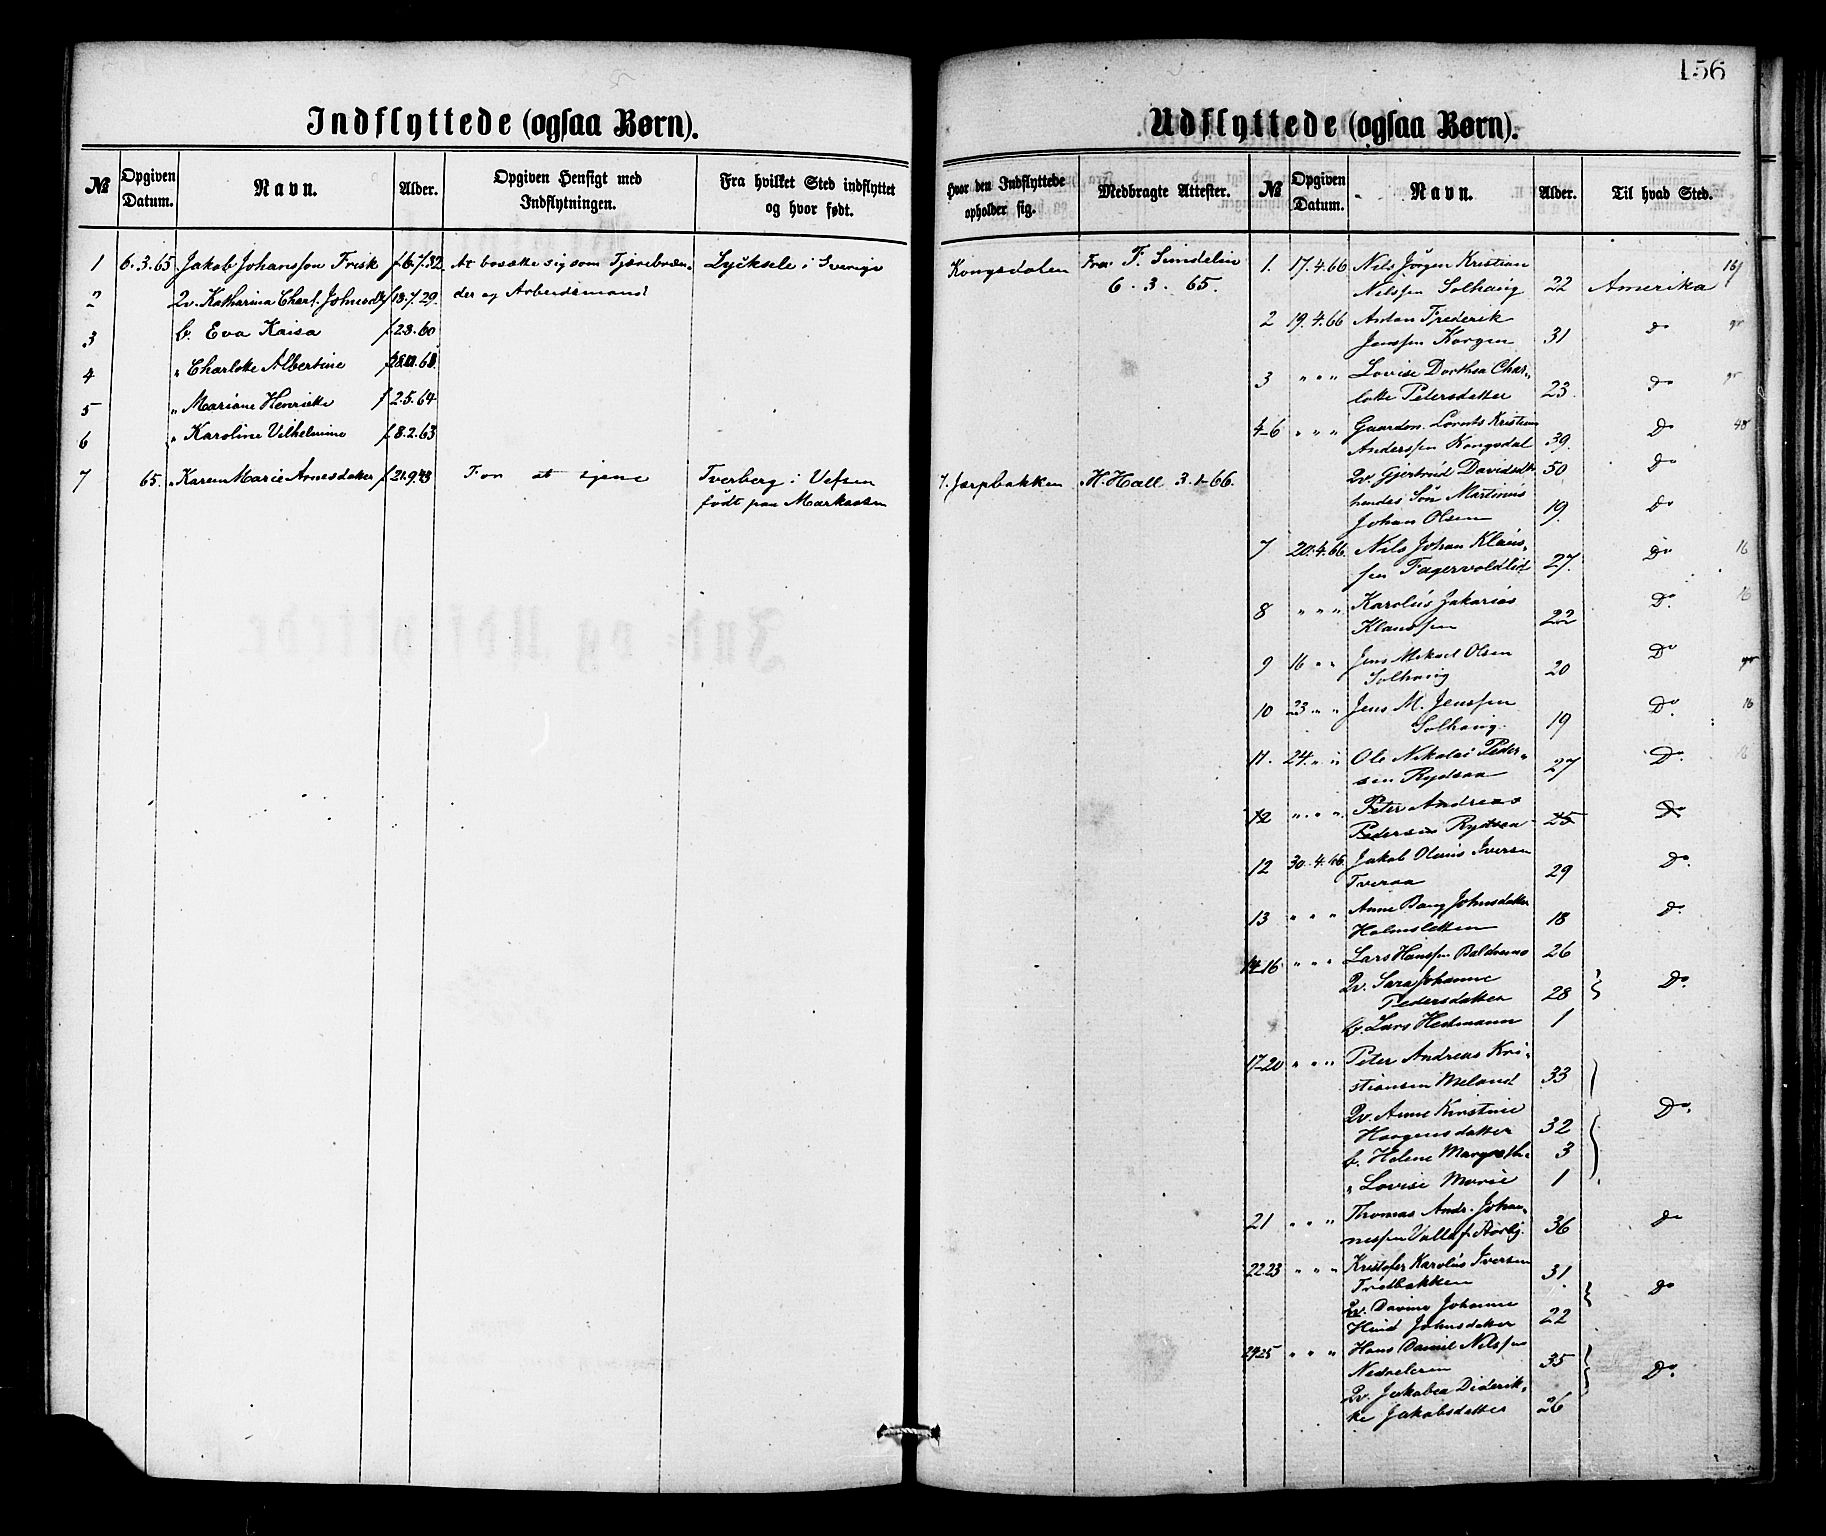 156
Indflyttede (ogsaa Børn).
№ Opgiven Datum. Navn. Alder. Opgiven Hensigt med Indflytningen. Fra hvilket Sted indflyttet og hvor født.
1 6.3.65 Jakob Johansson Frisk f 6.7.32 At bosætte sig som Tjærebræn- Lycksele i Sverige
2 Qv. Katharina Charl. Johnsdtr f 13.7.29. der og Arbeidsmand
3 b. Eva Kaisa f 2.3.60
4 " Charlotte Albertine
5 " Mariane Henrikke f 2.5.64
6 " Karoline Vilhelmine f 8.2.63
7 65. " Karen Marie Arnesdatter f 21.9.43 For at tjene Tverberg i Vefsen
født paa
Udflyttede (ogsaa Børn).
Hvor den Indflyttede opholder sig. Medbragte Attester. № Opgiven Datum. Navn. Alder. Til hvad Sted.
Kongsdalen Fra F. Sundelin
6. 3. 65.
7. Jarpbakken H. Hall 3.1.66.
1. 17.4.66 Nils Jörgen Kristian
Nilssen Solhaug 22 Amerika
2 19.4.66 Anton Frederik
Jenssen Korgen 31 do
3 " " " Lovise Dorthea Char-
lotte Petersdatter 23. do
4-6 " " " Gaardm. Lornts Kristian
Anderssen Kongsdal 39. Do
Qv. Gjertrud Davidsdtr 50 Do
hendes Sön Martinus
Johan Olsen 19. Do
7 20.4.66. Nils Johan Klaus-
sen Fagervoldlid 27. Do 16
8 " " " Karolus Zakarias
Klaussen 22 Do. 16
9 16 " " Jens Mikael Olsen
Solhaug 20 Do
10 23 " " Jens M. Jenssen
Solhaug. 19 Do. 16
11. 24. " " Ole Nikolai Peder-
sen Rydsaa 27 Do. 16
12 " " " Peter Andreas
Pedersen Rydsaa 25 Do
12 30.4.66. Jakob Olaus Iversen
Tveraa 29 Do.
13 " " " Anne Bang Johnsdatter
Holmsletten 18 Do.
14-16 " " " Lars Hanssen 26
Qv. Sara Johanne
Pedersdatter 28 Do.
b. Lars Hedmann 1
17-20 " " " Peter Andreas Kri-
stiansen Meland 33
Qv. Anne Kirstine
Haagensdatter 32 Do.
b. Helene Margreth. 3
" Lovise Marie 1
21 " " " Thomas Andr. Johan-
nessen 36 do
22.23 " " " Kristofer Karolus Iversen
Tredbakken 31. do
Qv. Davine Johanne
Hind Johnsdatter 22
24.25 " " " Hans Daniel Nilssen
Nedreleren 35 Do.
Qv. Jakobea Diderik-
ke Jakobsdatter 26